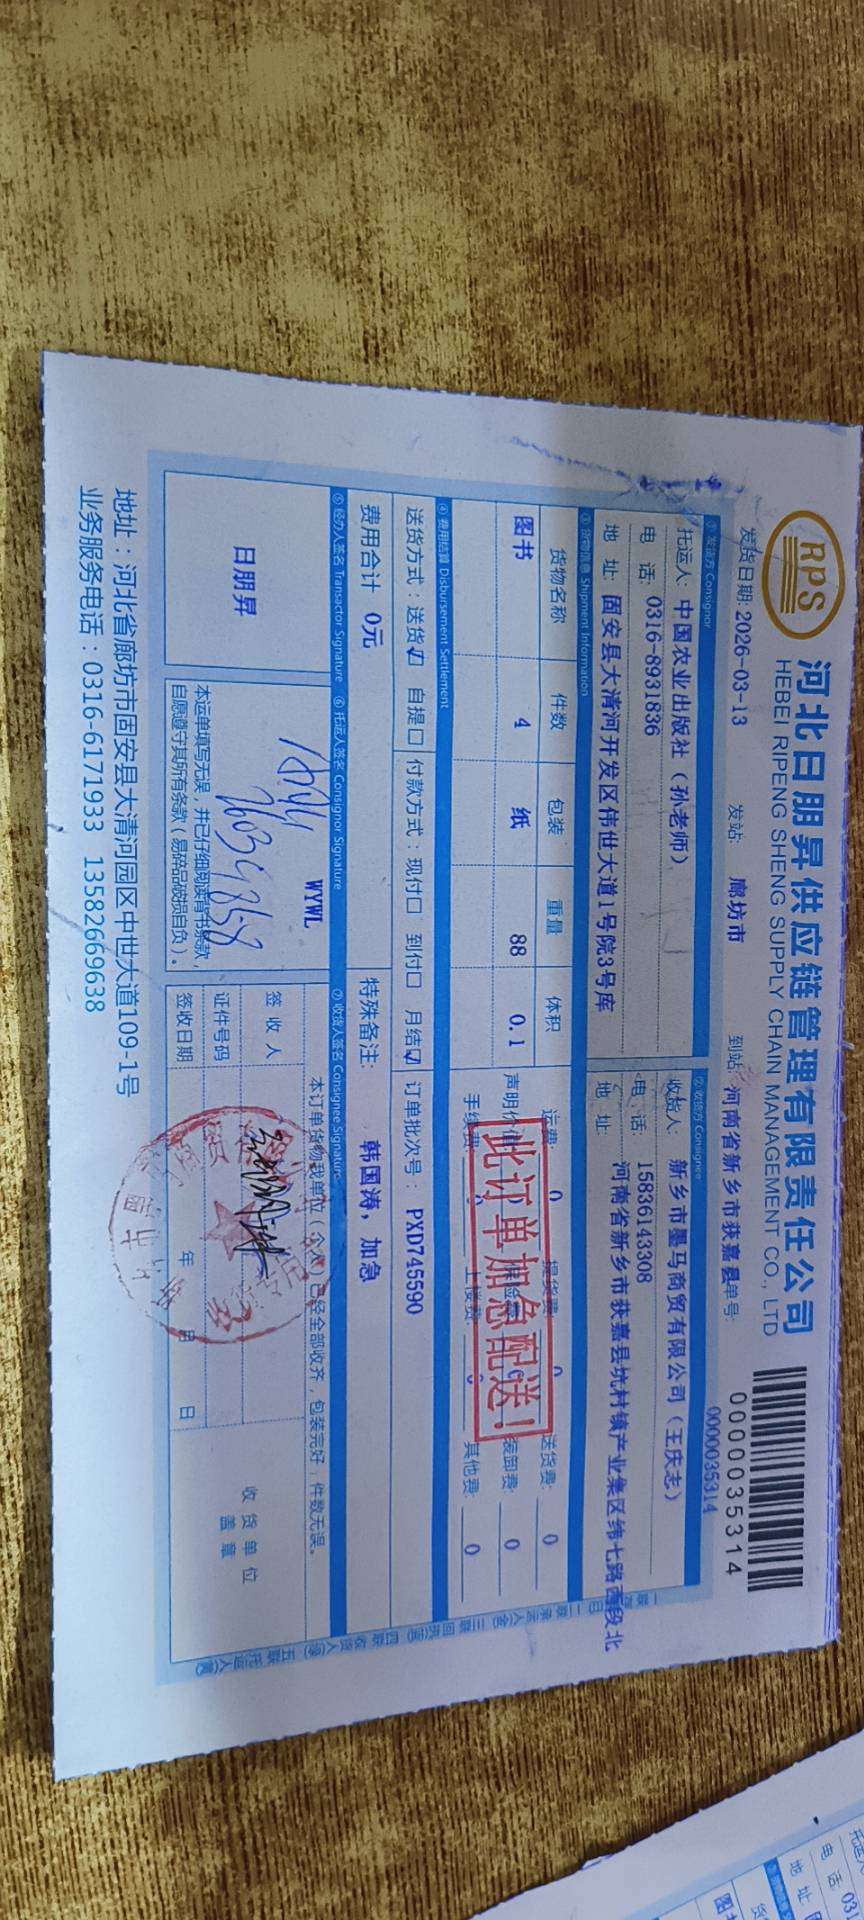 RPS
河北日朋昇供应链管理有限责任公司
HEBEI RIPENG SHENG SUPPLY CHAIN MANAGEMENT CO., LTD
0000035314
发货日期: 2026-03-13 发站: 廊坊市 到站: 河南省新乡市获嘉县 单号: 0000035314
① 发货方 Consignor ② 收货方 Consignee
托运人: 中国农业出版社（孙老师） 收货人: 新乡市墨马商贸有限公司（王庆志）
电 话: 0316-8931836 电 话: 15836143308
地 址: 固安县大清河开发区伟世大道1号院3号库 地 址: 河南省新乡市获嘉县坑村镇产业集区纬七路西段北
③ 货物信息 Shipment Information
货物名称 件数 包装 重量 体积 运费: 0 提货费: 0 送货费: 0
图书 4 纸 88 0.1 声明价值 保险费 装卸费: 0
手续费: 0 上楼费: 0 其他费: 0
此订单加急配送!
④ 费用结算 Disbursement Settlement
送货方式: 送货☑ 自提☐ 付款方式: 现付☐ 到付☐ 月结☑ 订单批次号: PXD745590
费用合计 0元 特殊备注: 韩国涛，加急
⑤ 经办人签名 Transactor Signature ⑥ 托运人签名 Consignor Signature ⑦ 收货人签名 Consignee Signature
日朋昇
WYWL
本运单填写无误，并已仔细阅读背书条款，
自愿遵守其所有条款（易碎品破损自负）。
本订单货物我单位（个人）已经全部收齐，包装完好，件数无误。
签 收 人
证件号码
签收日期 年 月 日
收 货 单 位
盖 章
地址：河北省廊坊市固安县大清河园区中世大道109-1号
业务服务电话：0316-6171933 13582669638
电 话: 031
地 址
图书